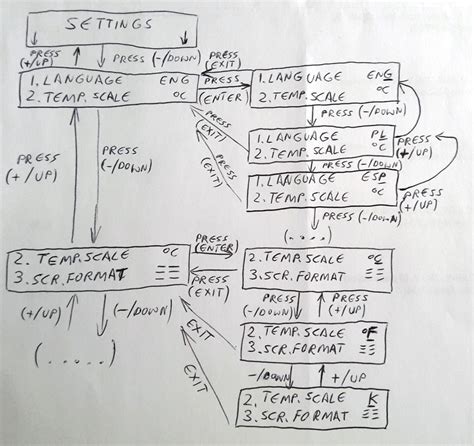 SETTINGS
PRESS (+/UP)
PRESS (-/DOWN)
PRESS (EXIT)
1. LANGUAGE ENG
2. TEMP. SCALE °C
PRESS (ENTER)
1. LANGUAGE ENG
2. TEMP. SCALE °C
PRESS (-/DOWN)
PRESS (EXIT)
1. LANGUAGE PL
2. TEMP. SCALE °C
PRESS (+/UP)
PRESS (-/DOWN)
PRESS (EXIT)
1. LANGUAGE ESP
2. TEMP. SCALE °C
PRESS (+/UP)
PRESS (-/DOWN)
(.....)
PRESS (+/UP)
PRESS (-/DOWN)
2. TEMP. SCALE °C
3. SCR. FORMAT
PRESS (ENTER)
PRESS (EXIT)
2. TEMP. SCALE °C
3. SCR. FORMAT
PRESS (+/UP)
(-/DOWN)
(.....)
PRESS (-/DOWN)
PRESS (+/UP)
EXIT
2. TEMP. SCALE °F
3. SCR. FORMAT
-/DOWN
+/UP
EXIT
2. TEMP. SCALE K
3. SCR. FORMAT